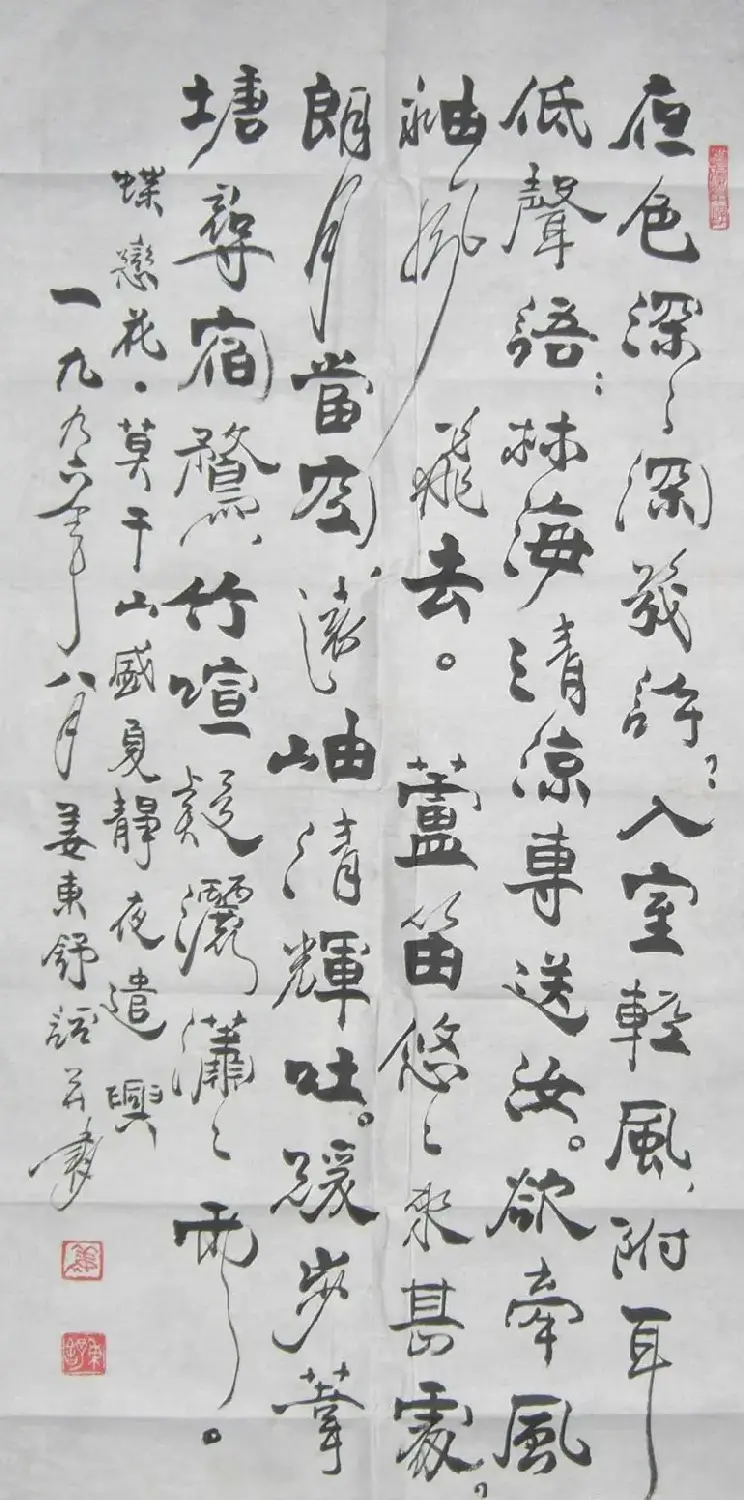 夜色深〻深幾許？入室輕風、附耳
低聲語：林海清涼專送汝。欲牽風
袖風飛去。　蘆笛悠〻來甚處。
朗月當空、遠岫清輝吐。緩步葦
塘尋宿鶩、竹喧疑灑瀟〻雨。
蝶戀花·莫干山盛夏靜夜遣興
一九九六年八月姜東舒詞并書